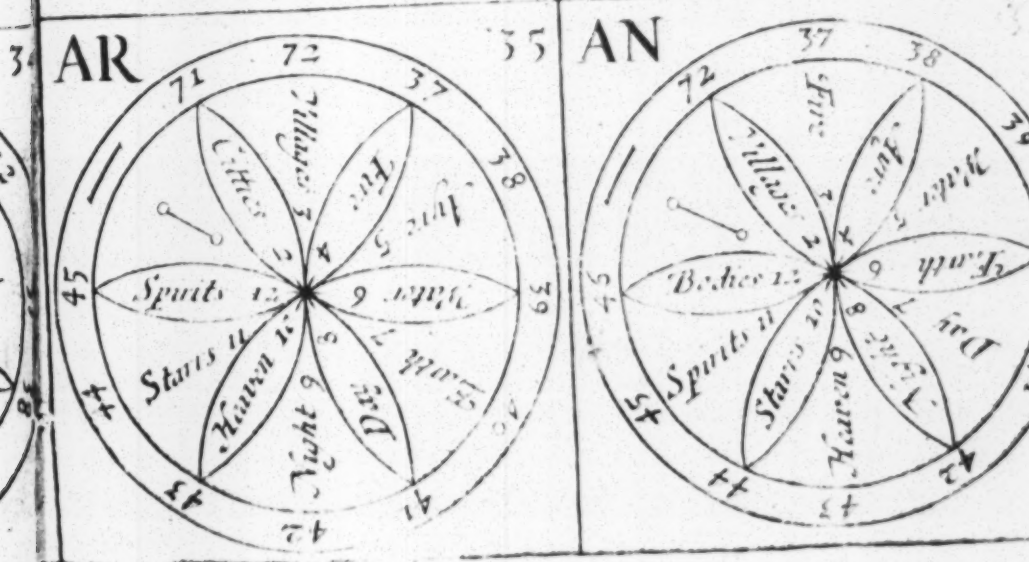 AR
35
72
37
38
39
40
41
42
43
44
45
71
Villages 3
Fire 4
Ayre 5
Water 6
Earth 7
Day 8
Night 9
Heaven 10
Starrs 11
Spirits 12
Citties 2
AN
37
38
39
42
43
44
45
46
72
Fire 3
Ayre 4
Water 5
Earth 6
Day 7
Night 8
Heaven 9
Starrs 10
Spirits 11
Villages 2